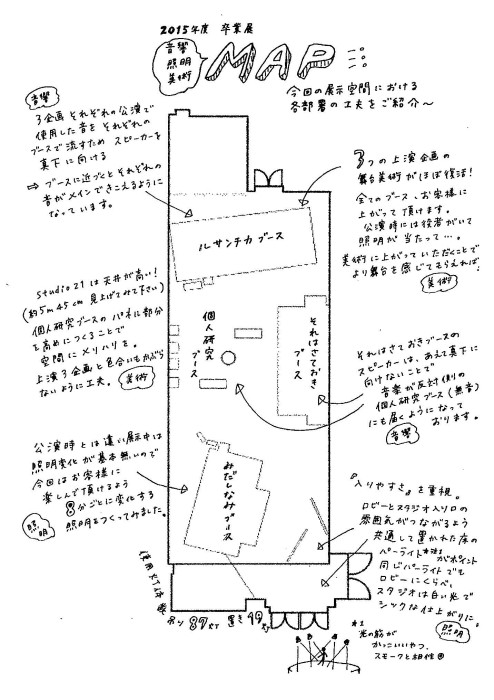 2015年度 卒業展
音響
照明
美術
MAP
今回の展示空間における
各部署の工夫をご紹介〜
音響
3企画それぞれの公演で
使用した音をそれぞれの
ブースで流すためスピーカーを
真下に向ける
⇨ ブースに近づくとそれぞれの
音がメインできこえるように
なっています。
3つの上演企画の
舞台美術がほぼ復活!
全てのブース、お客様に
上がって頂けます。
公演時には役者がいて
照明が当たって…。
美術に上がっていただくことで
より舞台を感じてもらえれば!
美術
ルサンチカブース
studio21は天井が高い!
(約5m45cm 見上げてみて下さい)
個人研究ブースのパネル部分
を高めにつくることで
空間にメリハリを。
上演3企画と色合いもかぶら
ないように工夫。
美術
個人研究
ブース
それはさておき
ブース
それはさておきブースの
スピーカーは、あえて真下に
向けないことで
音楽が反対側の
個人研究ブース(無音)
にも届くようになって
おります。
音響
公演時とは違い展示中は
照明変化が基本無いので
今回はお客様に
楽しんで頂けるよう
8分ごとに変化する
照明をつくってみました。
照明
みだしなみブース
『入りやすさ』を重視。
ロビーとスタジオ入り口の
雰囲気がつながるよう
共通して置かれた床の
パーライト※1がポイント
同じパーライトでも
ロビーにくらべ、
スタジオは白い光で
シックな仕上がりに。
照明
使用灯体数
吊り 87灯 置き 49灯
※1
光の筋が
かっこいいやつ。
スモークと相性◎